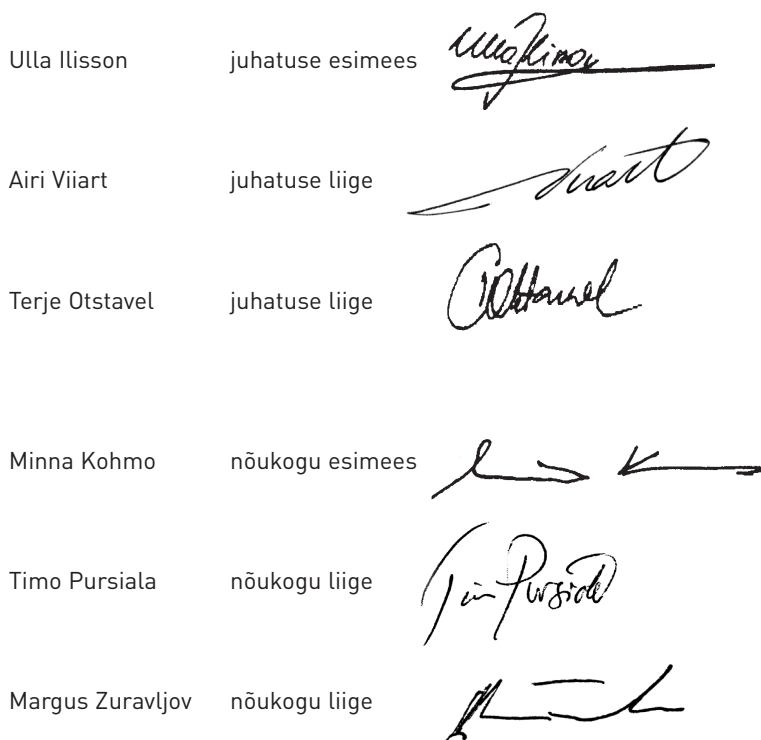 Ulla Ilisson juhatuse esimees
Airi Viiart juhatuse liige
Terje Otstavel juhatuse liige
Minna Kohmo nõukogu esimees
Timo Pursiala nõukogu liige
Margus Zuravljov nõukogu liige